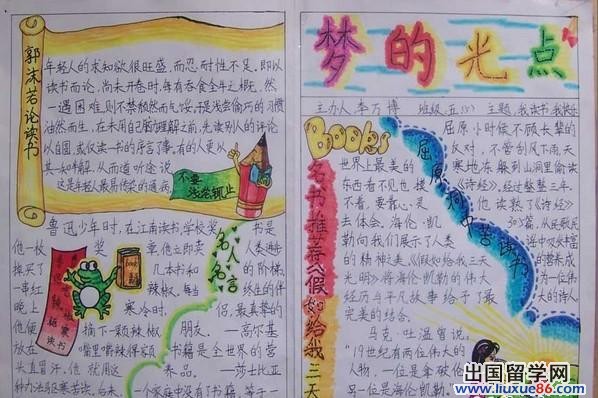 郭沫若论读书
年轻人的求知欲很旺盛,而忍耐性不足,即以
读书而论,尚未开卷时,每有吞食全牛之概,然
一遇困难,则不禁颓然而气馁,于是浅尝偷巧的习惯
油然而生,在未用自己脑力理解之前,先读别人的评论
以自园,或仅读一书的序言等,有的人更以
其一知半解,从而道听途说
这是年轻人最易传染的通病
不要浅尝辄止
鲁迅少年时,在江南读书,学校奖
他一枚奖章,他立即卖
掉买了几本书和
一串红辣椒。每当
晚上寒冷时,
他便摘下一颗辣椒
放在嘴里嚼辣得额
头直冒汗。他就用这
种办法驱寒苦读。后来
辣椒驱寒读书
名人名言
书是
人类进步
的阶梯、
终生的伴
侣、最真挚的
朋友。
——高尔基
书籍是全世界的营
养品。
——莎士比亚
一个家庭中没有了书籍,等于一
梦的光点
主办人:李万博 班级:五(5) 主题:我读书,我快乐
Books
名书推荐《假如给我三天
世界上最美的
东西看不见也摸
不着,要靠心灵
去体会,海伦·凯
勒向我们展示了人类
的精神之美,《假如给我三
天光明》将海伦·凯勒的伟大
经历与平凡故事给予了最
完美的结合。
马克·吐温曾说:
“19世纪有两位伟大的
人物,一位是拿破仑
另一位是海伦凯勒。
屈原洞中苦读书
屈原小时候不顾长辈的
反对,不管刮风下雨天
寒地冻躲到山洞里偷读
《诗经》。经过整整三年
他读熟了《诗经》
305篇,从民歌民
谣中吸收丰富
的营养成
为一位伟
大的诗人
出国留学网
www.liuxue86.com